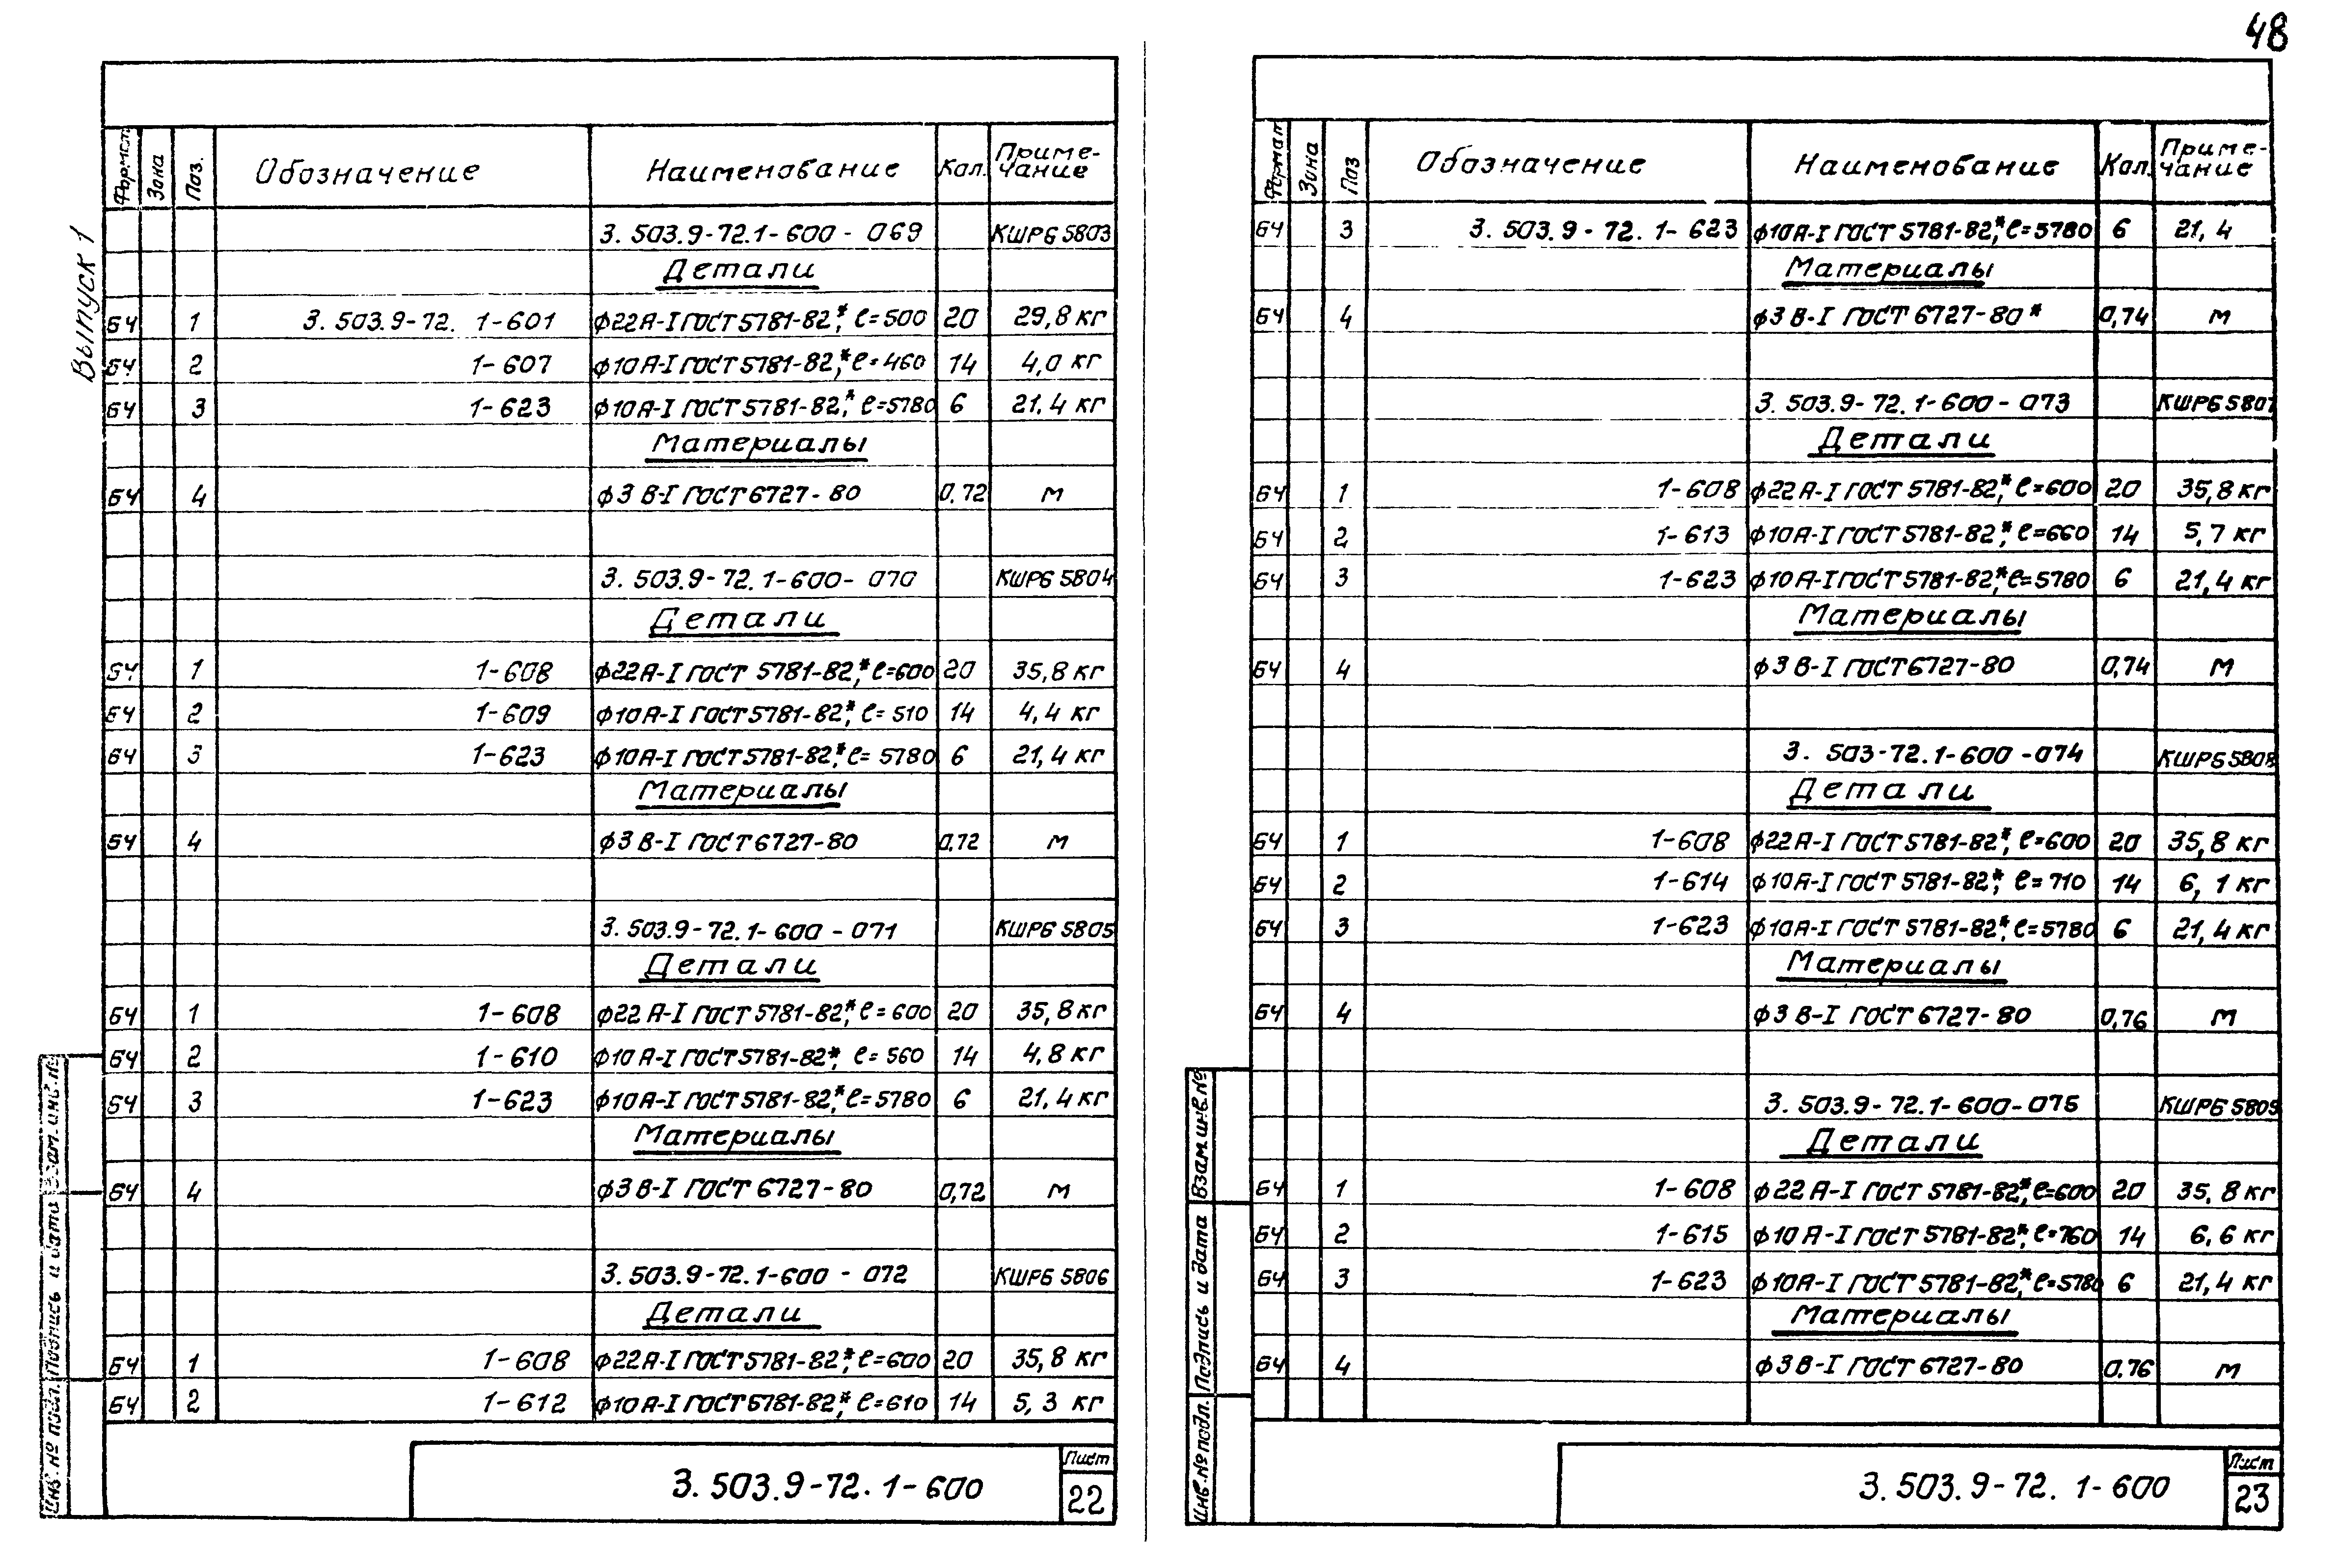 48
Выпуск 1
Формат Зона Поз. Обозначение Наименование Кол. Приме-
чание
3.503.9-72.1-600-069 КШРБ 5803
Детали
БЧ 1 3.503.9-72. 1-601 ф22А-I ГОСТ 5781-82*, ℓ=500 20 29,8 кг
БЧ 2 1-607 ф10А-I ГОСТ 5781-82*, ℓ=460 14 4,0 кг
БЧ 3 1-623 ф10А-I ГОСТ 5781-82*, ℓ=5780 6 21,4 кг
Материалы
БЧ 4 ф3 В-I ГОСТ 6727-80 0,72 м
3.503.9-72.1-600-070 КШРБ 5804
Детали
БЧ 1 1-608 ф22А-I ГОСТ 5781-82*, ℓ=600 20 35,8 кг
БЧ 2 1-609 ф10А-I ГОСТ 5781-82*, ℓ=510 14 4,4 кг
БЧ 3 1-623 ф10А-I ГОСТ 5781-82*, ℓ=5780 6 21,4 кг
Материалы
БЧ 4 ф3 В-I ГОСТ 6727-80 0,72 м
3.503.9-72.1-600-071 КШРБ 5805
Детали
БЧ 1 1-608 ф22А-I ГОСТ 5781-82*, ℓ=600 20 35,8 кг
БЧ 2 1-610 ф10А-I ГОСТ 5781-82*, ℓ=560 14 4,8 кг
БЧ 3 1-623 ф10А-I ГОСТ 5781-82*, ℓ=5780 6 21,4 кг
Материалы
БЧ 4 ф3 В-I ГОСТ 6727-80 0,72 м
3.503.9-72.1-600-072 КШРБ 5806
Детали
БЧ 1 1-608 ф22А-I ГОСТ 5781-82*, ℓ=600 20 35,8 кг
БЧ 2 1-612 ф10А-I ГОСТ 5781-82*, ℓ=610 14 5,3 кг
Инв.№ подл. Подпись и дата Взам.инв.№
3.503.9-72.1-600
Лист
22
Формат Зона Поз Обозначение Наименование Кол. Приме-
чание
БЧ 3 3.503.9-72.1-623 ф10А-I ГОСТ 5781-82*, ℓ=5780 6 21,4
Материалы
БЧ 4 ф3 В-I ГОСТ 6727-80* 0,74 м
3.503.9-72.1-600-073 КШРБ 5807
Детали
БЧ 1 1-608 ф22А-I ГОСТ 5781-82*, ℓ=600 20 35,8 кг
БЧ 2 1-613 ф10А-I ГОСТ 5781-82*, ℓ=660 14 5,7 кг
БЧ 3 1-623 ф10А-I ГОСТ 5781-82*, ℓ=5780 6 21,4 кг
Материалы
БЧ 4 ф3 В-I ГОСТ 6727-80 0,74 м
3.503-72.1-600-074 КШРБ 5808
Детали
БЧ 1 1-608 ф22А-I ГОСТ 5781-82*, ℓ=600 20 35,8 кг
БЧ 2 1-614 ф10А-I ГОСТ 5781-82*, ℓ=710 14 6,1 кг
БЧ 3 1-623 ф10А-I ГОСТ 5781-82*, ℓ=5780 6 21,4 кг
Материалы
БЧ 4 ф3 В-I ГОСТ 6727-80 0,76 м
3.503.9-72.1-600-075 КШРБ 5809
Детали
БЧ 1 1-608 ф22А-I ГОСТ 5781-82*, ℓ=600 20 35,8 кг
БЧ 2 1-615 ф10А-I ГОСТ 5781-82*, ℓ=760 14 6,6 кг
БЧ 3 1-623 ф10А-I ГОСТ 5781-82*, ℓ=5780 6 21,4 кг
Материалы
БЧ 4 ф3 В-I ГОСТ 6727-80 0,76 м
Инв.№ подл. Подпись и дата Взам.инв.№
3.503.9-72.1-600
Лист
23